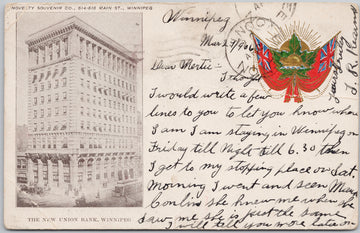 NOVELTY SOUVENIR CO., 514-516 MAIN ST., WINNIPEG
Winnipeg
Mar 29/06
Dear Mertie
I thought
I would write a few
lines to you to let you know where
I am I am staying in Winnipeg
Friday till Night till 6.30 then
I got to my stopping place on Sat.
Morning I went and seen Missy
Conlin's she knew me when she
saw me she is just the same
I will tell you more later on
THE NEW UNION BANK, WINNIPEG